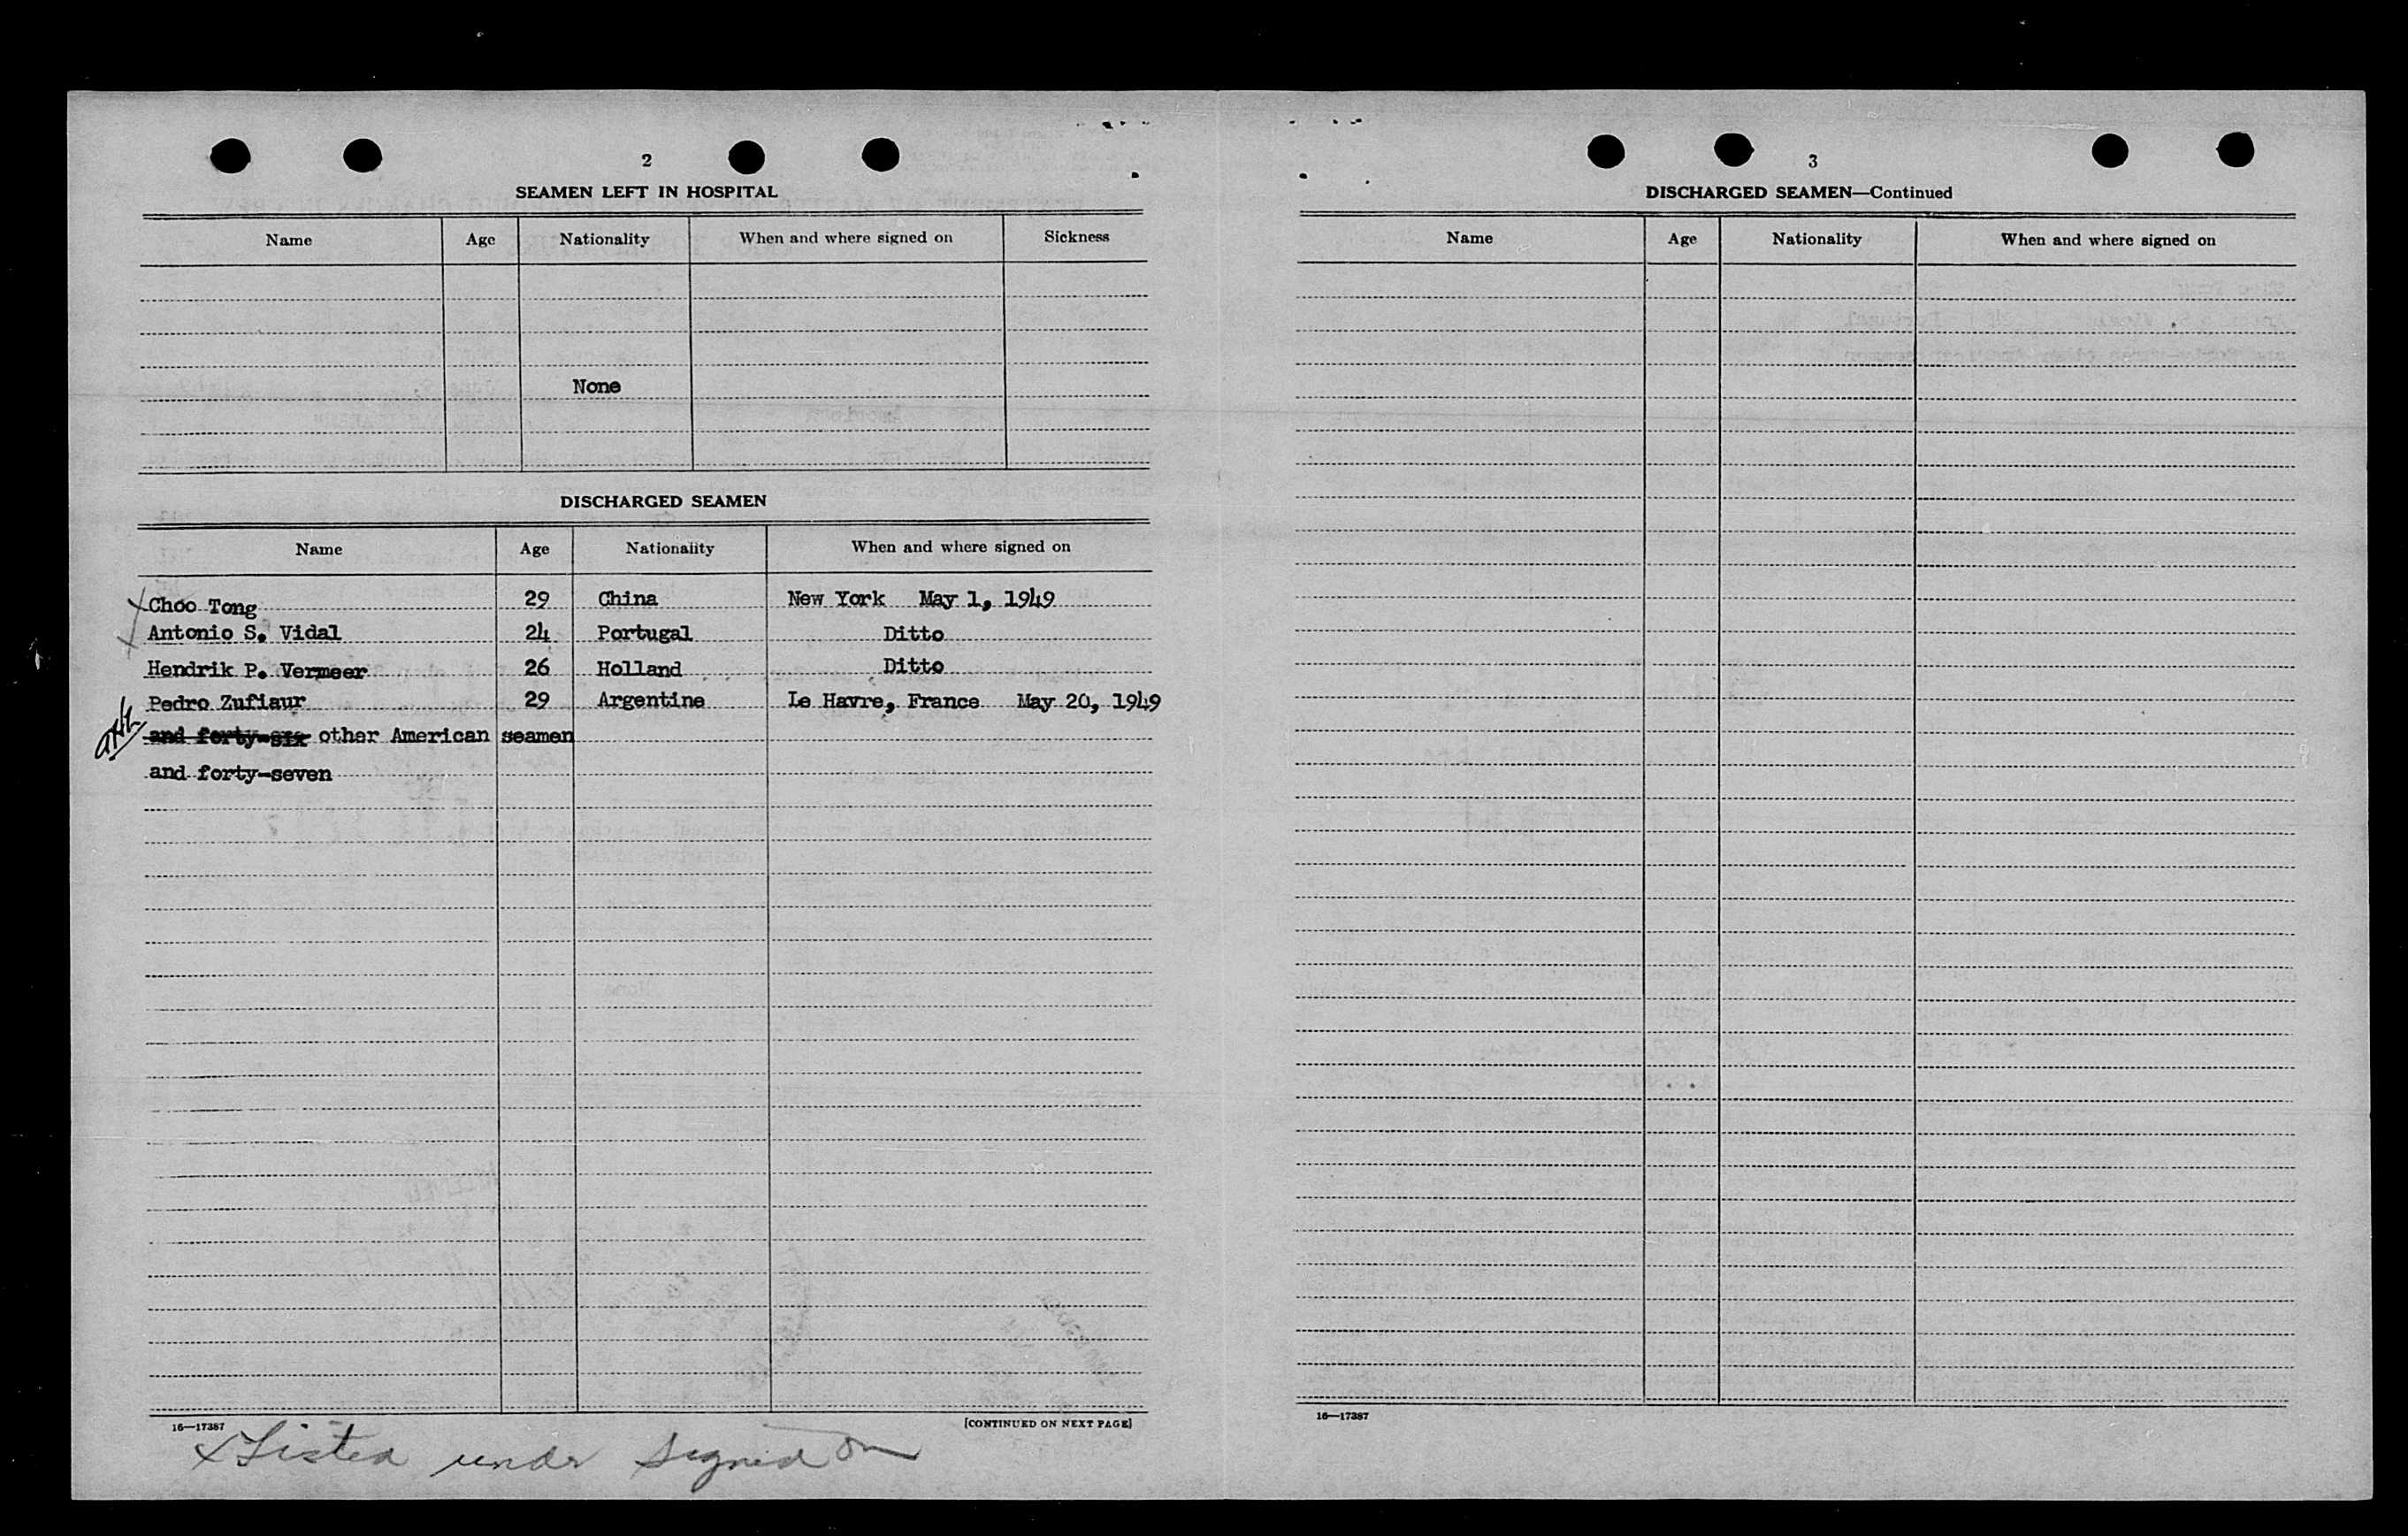 2
SEAMEN LEFT IN HOSPITAL
Name Age Nationality When and where signed on Sickness
None
DISCHARGED SEAMEN
Name Age Nationality When and where signed on
x Choo Tong 29 China New York May 1, 1949
x Antonio S. Vidal 24 Portugal Ditto
Hendrik P. Vermeer 26 Holland Ditto
Pedro Zufiaur 29 Argentine Le Havre, France May 20, 1949
and forty-six other American seamen
and forty-seven
16—17387
[CONTINUED ON NEXT PAGE]
x Listed under signed on
3
DISCHARGED SEAMEN—Continued
Name Age Nationality When and where signed on
16—17387